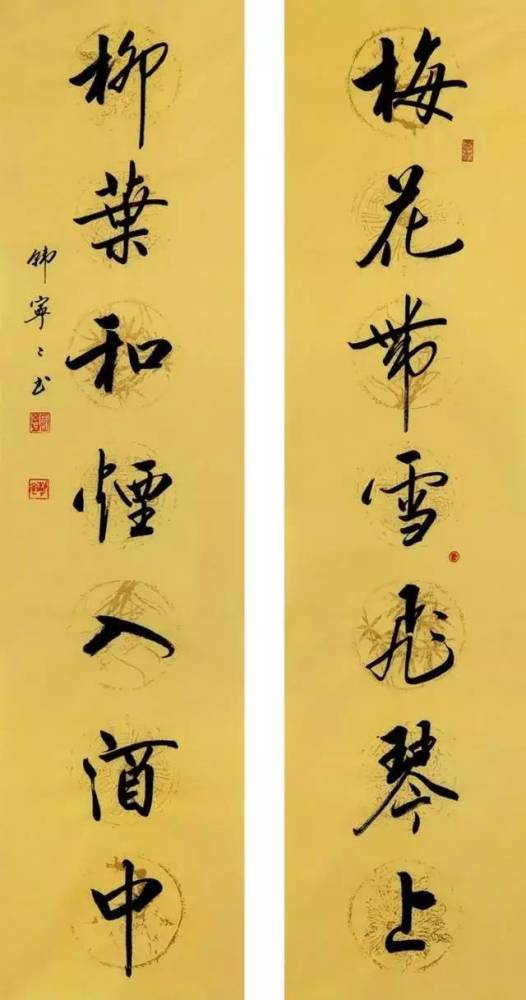 梅花带雪飛琴上
柳葉和煙入酒中
韩寧寧书